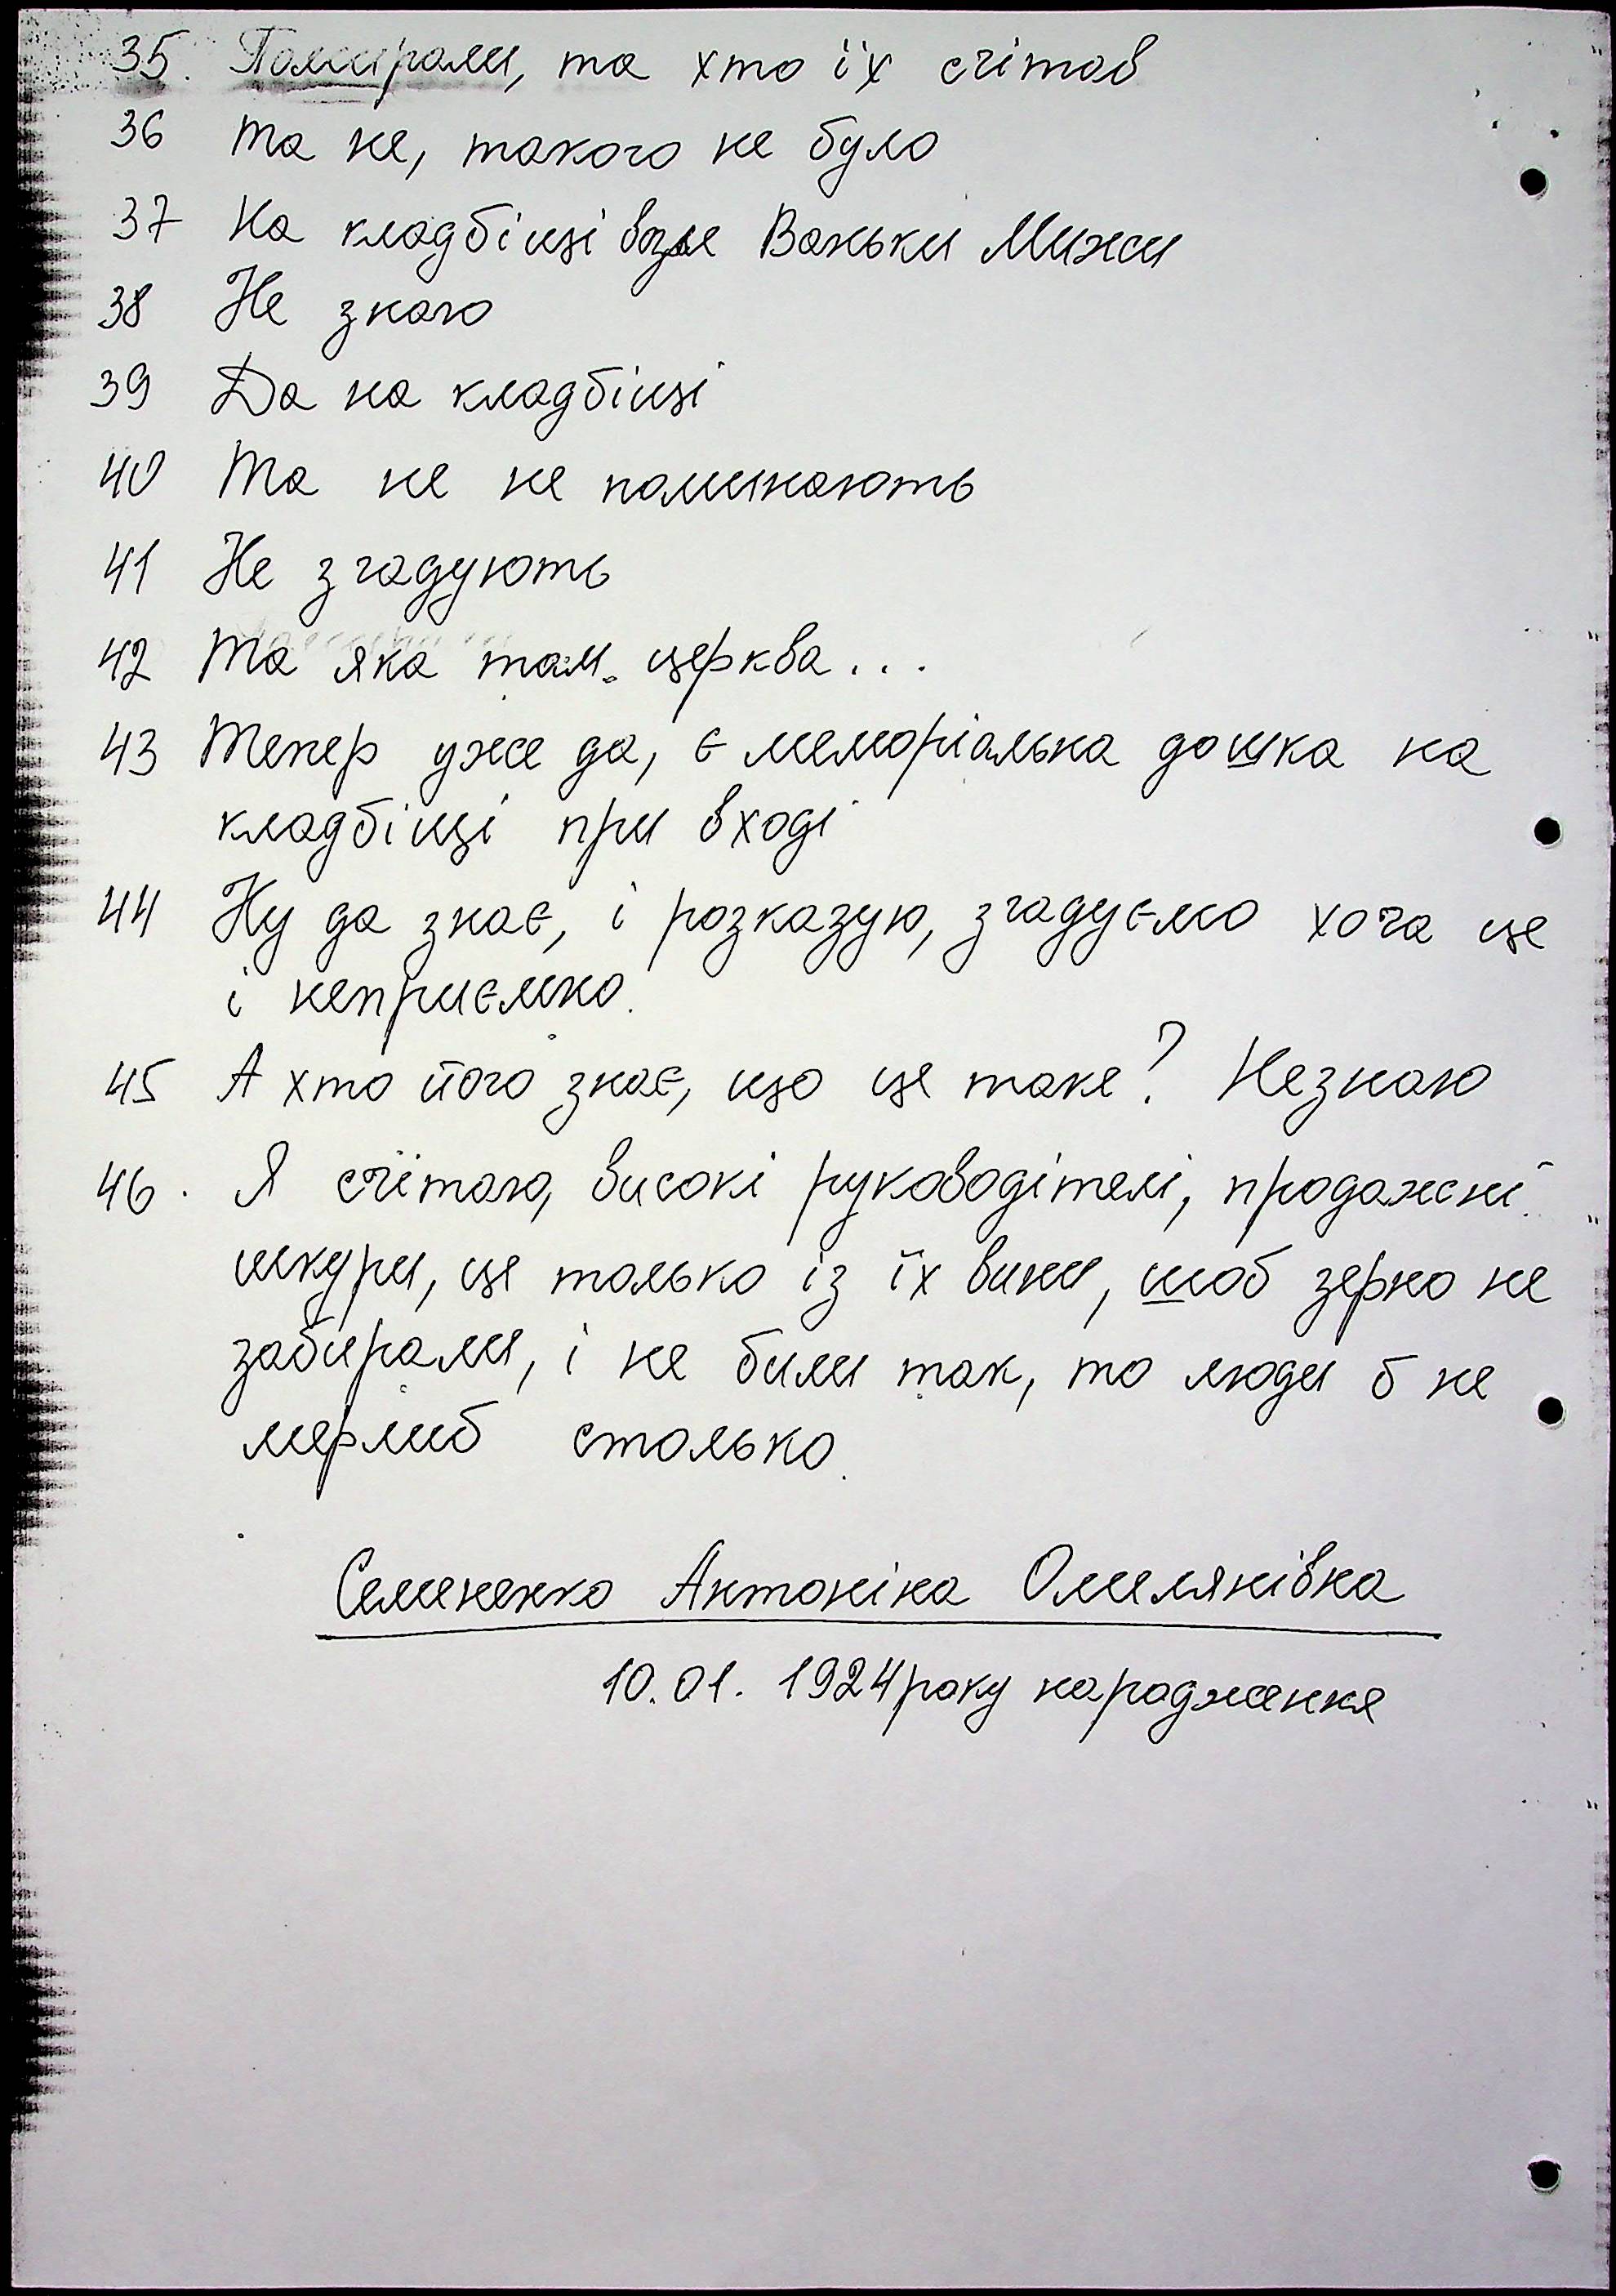 35. Помирали, та хто їх счітав
36 Та не, такого не було
37 На кладбіщі возле Ваньки Мижи
38 Не знаю
39 Да на кладбіщі
40 Та не не поминають
41 Не згадують
42 Та яка там церква...
43 Тепер уже да, є меморіальна дошка на
кладбіщі при вході
44 Ну да знає, і розказую, згадуємо хоча це
і неприємно.
45 А хто його знає, що це таке? Незнаю
46. Я счітаю, високі руководітелі, продажні
шкури, це только із їх вини, шоб зерно не
забирали, і не били так, то люди б не
мерлиб столько.
Семененко Антоніна Омелянівна
10.01. 1924 року народження